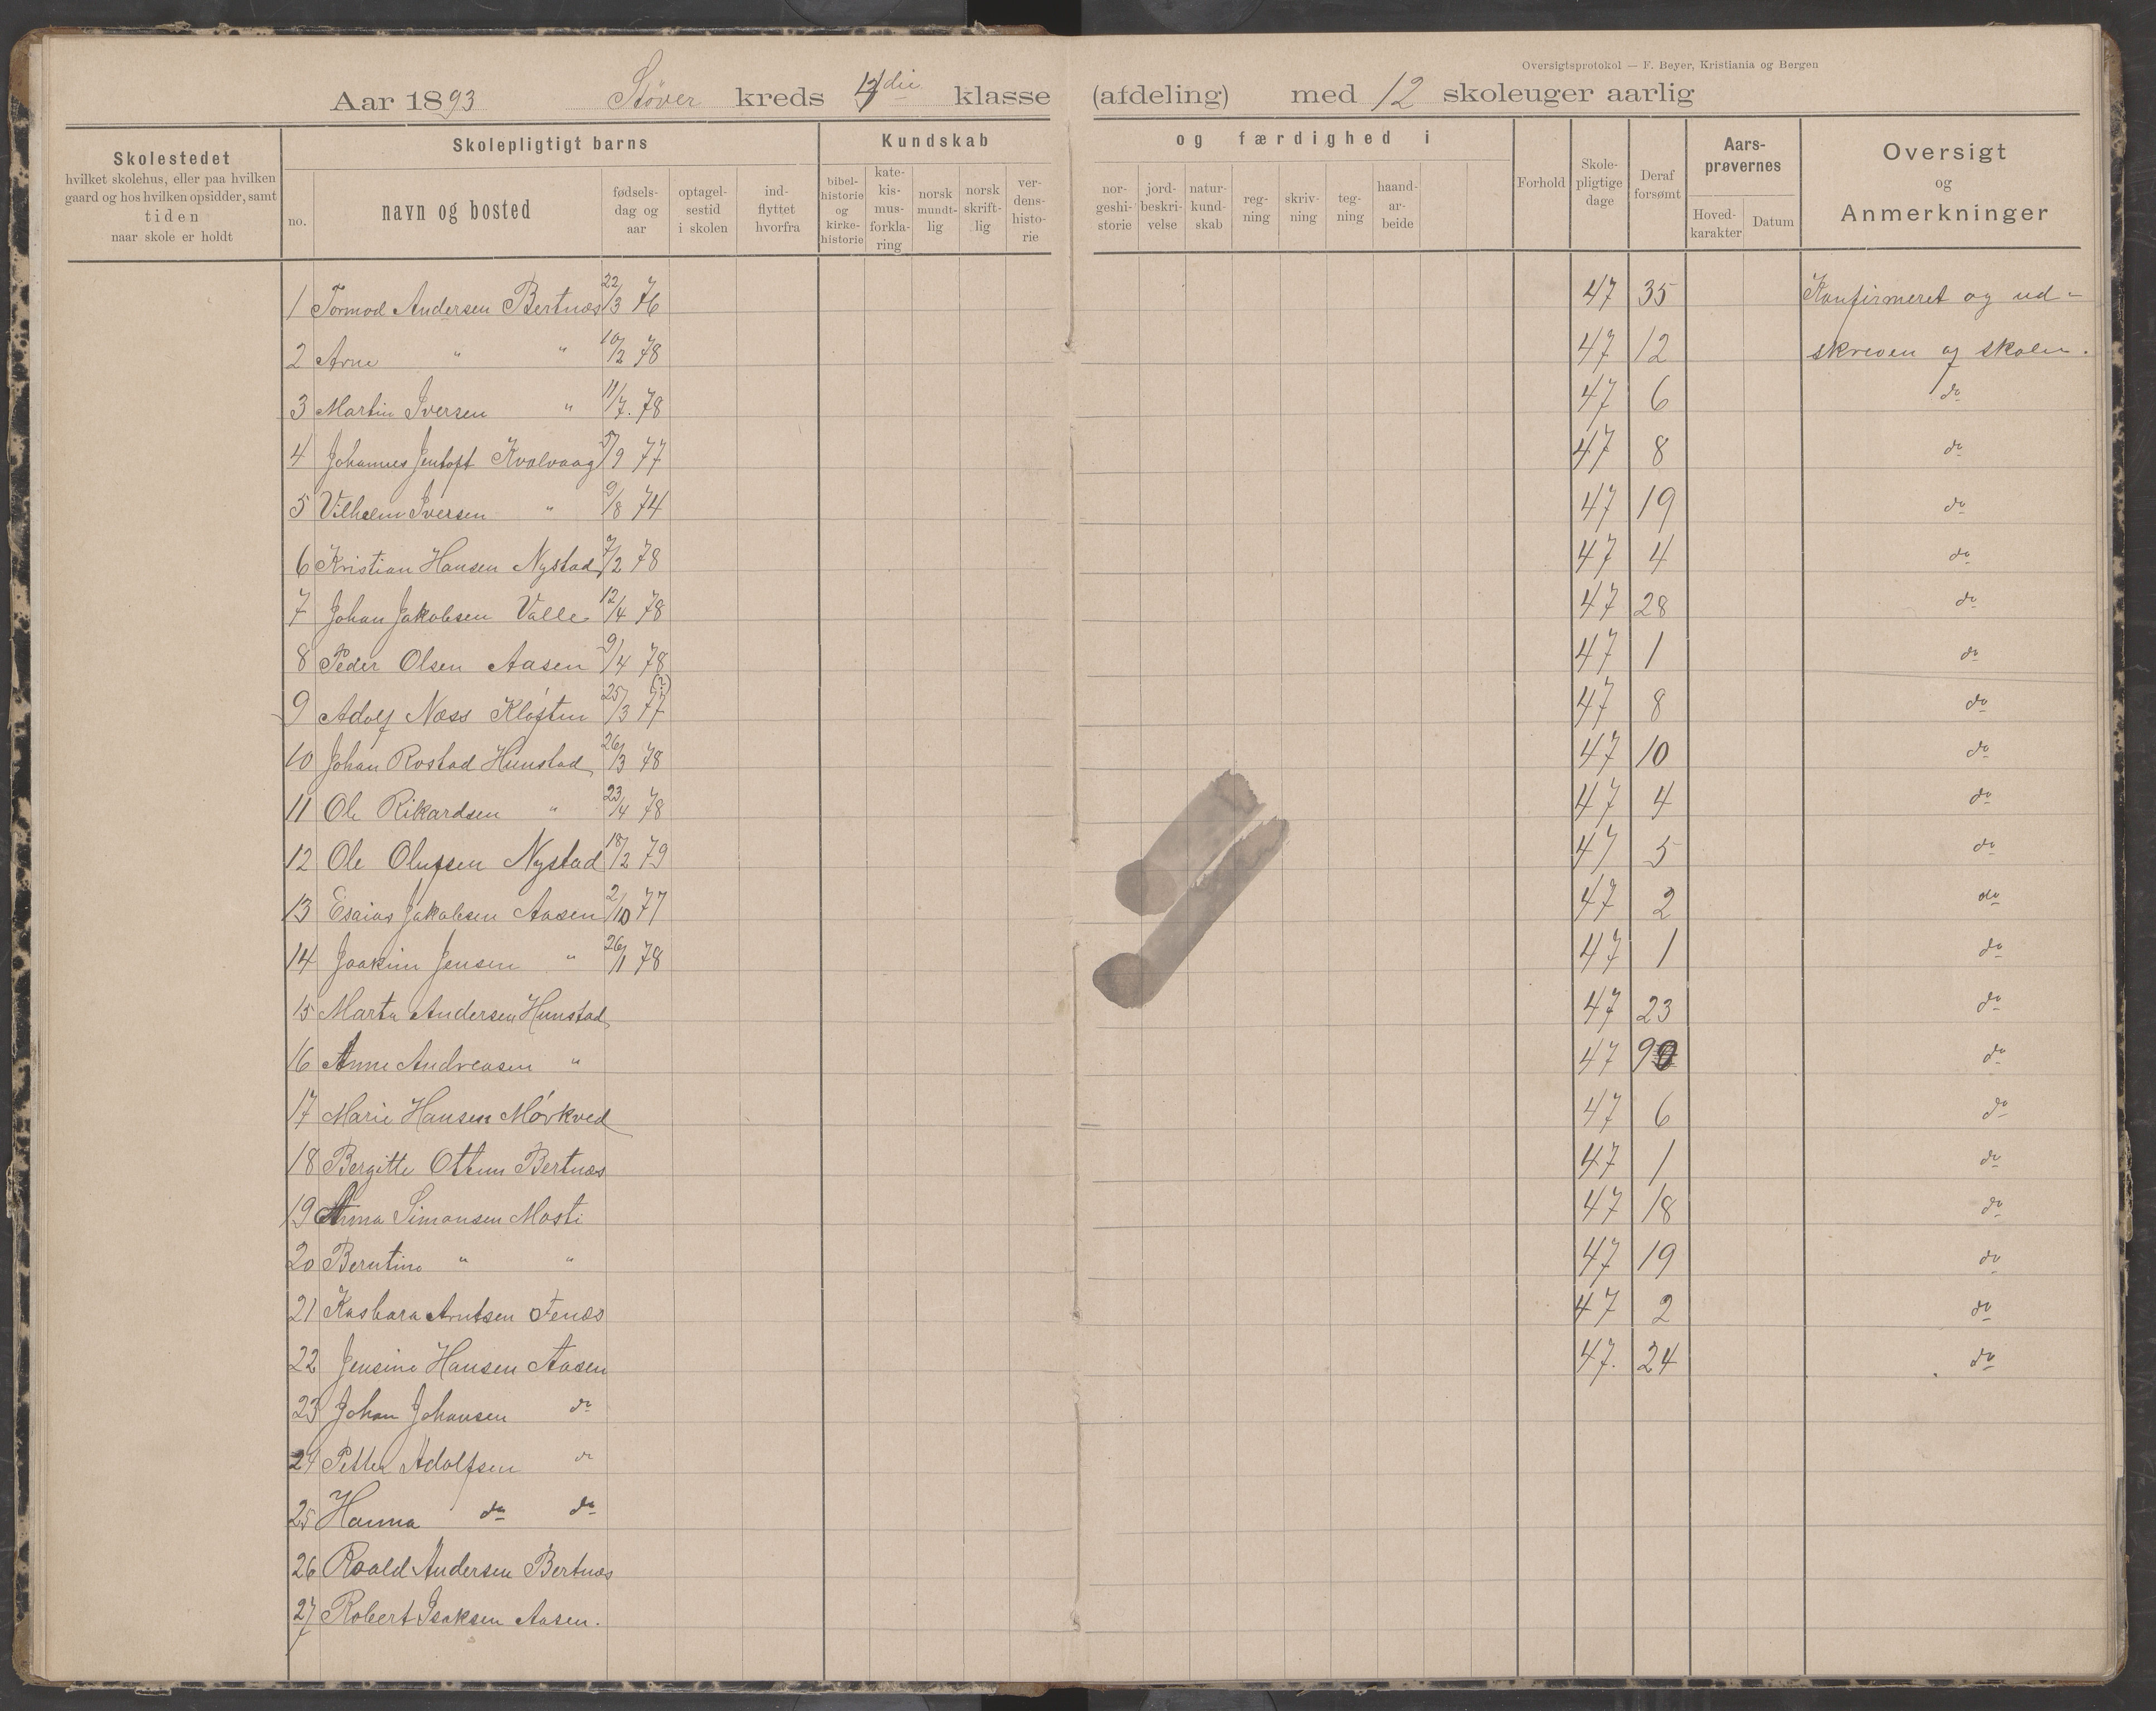 Oversigtsprotokol — F. Beyer, Kristiania og Bergen
Aar 1893 Støver kreds die klasse (afdeling) med 12 skoleuger aarlig
Skolestedet
hvilket skolehus, eller paa hvilken
gaard og hos hvilken opsidder, samt
tiden
naar skole er holdt
Skolepligtigt barns
no.
navn og bosted
fødsels-
dag og
aar
optagel-
sestid
i skolen
ind-
flyttet
hvorfra
Kundskab og færdighed i
bibel-
historie
og
kirke-
historie
kate-
kis-
mus-
forkla-
ring
norsk
mundt-
lig
norsk
skrift-
lig
ver-
dens-
histo-
rie
nor-
geshi-
storie
jord-
beskri-
velse
natur-
kund-
skab
reg-
ning
skriv-
ning
teg-
ning
haand-
ar-
beide
Forhold
Skole-
pligtige
dage
Deraf
forsømt
Aars-
prøvernes
Hoved-
karakter
Datum
Oversigt
og
Anmerkninger
1 Tormod Andersen Bertnæs 22/3 76 47 35 Konfirmeret og ud-
2 Arne " " 10/2 78 47 12 skreven af skolen.
3 Martin Iversen " 11/7. 78 47 6 do
4 Johannes Jentoft Kvalvaag 5/9 77 47 8 do
5 Vilhelm Iversen " 9/8 74 47 19 do
6 Kristian Hansen Nystad 7/2 78 47 4 do
7 Johan Jakobsen Valle 12/4 78 47 28 do
8 Peder Olsen Aasen 9/4 78 47 1 do
9 Adolf Næss Kløften 25/3 77 (?) 47 8 do
10 Johan Rostad Hunstad 26/3 78 47 10 do
11 Ole Rikardsen " 23/4 78 47 4 do
12 Ole Olufsen Nystad 18/2 79 47 5 do
13 Esaias Jakobsen Aasen 2/10 77 47 2 do
14 Joakim Jensen " 26/1 78 47 1 do
15 Marta Andersen Hunstad 47 23 do
16 Anne Andreasen " 47 9 do
17 Marie Hansen Mørkved 47 6 do
18 Bergitte Ottem Bertnæs 47 1 do
19 Anna Simonsen Mosti 47 18 do
20 Berntine " " 47 19 do
21 Kasbara Arntsen Fenæs 47 2 do
22 Jensine Hansen Aasen 47. 24 do
23 Johan Johansen do
24 Petter Adolfsen do
25 Hanna do do
26 Roald Andersen Bertnæs
27 Robert Isaksen Aasen.